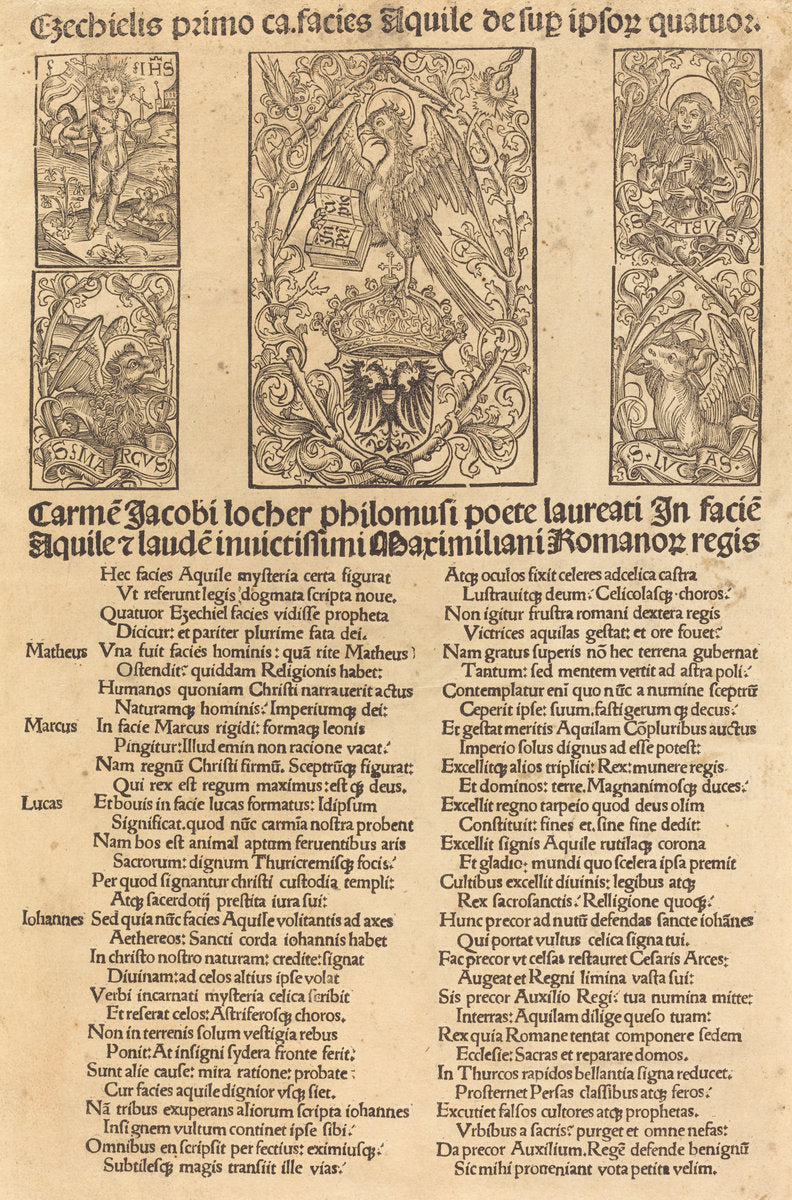 Ezechielis primo ca. facies Aquile de sup̲ ipsoꝝ quatuoꝝ.
IHS
S MATEVS
In pri
nci pio
S : MARCVS
S · LVCAS ·
Carmē Jacobi locher philomusi poete laureati In faciē
Aquile ⁊ laudē inuictissimi Maximiliani Romanoꝝ regis
Hec facies Aquile mysteria certa figurat
Vt referunt legis dogmata scripta noue.
Quatuor Ezechiel facies vidisse propheta
Dicitur: et pariter plurime fata dei.
Matheus Vna fuit facies hominis: quā rite Matheus
Ostendit: quiddam Religionis habet:
Humanos quoniam Christi narrauerit actus
Naturamqꝫ hominis: Imperiumqꝫ dei:
Marcus In facie Marcus rigidi: formaqꝫ leonis
Pingitur: Illud emin non racione vacat:
Nam regnū Christi firmū. Sceptrūqꝫ figurat:
Qui rex est regum maximus: estqꝫ deus.
Lucas Et bouis in facie lucas formatus: Idipsum
Significat. quod nūc carmīa nostra probent
Nam bos est animal aptum feruentibus aris
Sacrorum: dignum Thuricremisqꝫ focis:
Per quod signantur christi custodia templi:
Atqꝫ sacerdotij prestita iura sui:
Iohannes Sed quia nūc facies Aquile volitantis ad axes
Aethereos: Sancti corda iohannis habet
In christo nostro naturam: credite: signat
Diuinam: ad celos altius ipse volat
Verbi incarnati mysteria celica scribit
Et reserat celos: Astriferosqꝫ choros.
Non in terrenis solum vestigia rebus
Ponit: At insigni sydera fronte ferit:
Sunt alie cause: mira ratione: probate:
Cur facies aquile dignior vsqꝫ siet.
Nā tribus exuperans aliorum scripta iohannes
Insignem vultum continet ipse sibi:
Omnibus en scripsit perfectius: eximiusqꝫ:
Subtilesqꝫ magis transiit ille vias:
Atqꝫ oculos fixit celeres ad celica castra
Lustrauitqꝫ deum: Celicolasqꝫ choros:
Non igitur frustra romani dextera regis
Victrices aquilas gestat: et ore fouet:
Nam gratus superis nō hec terrena gubernat
Tantum: sed mentem vertit ad astra poli:
Contemplatur enī quo nūc a numine sceptrū
Ceperit ipse: suum. fastigerumqꝫ decus:
Et gestat meritis Aquilam Cōpluribus auctus
Imperio solus dignus ad esse potest:
Excellitqꝫ alios triplici: Rex: munere regis
Et dominos: terre. Magnanimosqꝫ duces:
Excellit regno tarpeio quod deus olim
Constituit: fines et. sine fine dedit:
Excellit signis Aquile rutilaqꝫ corona
Et gladio: mundi quo scelera ipsa premit
Cultibus excellit diuinis: legibus atqꝫ
Rex sacrosanctis: Relligione quoqꝫ:
Hunc precor ad nutū defendas sancte iohānes
Qui portat vultus celica signa tui.
Fac precor vt celsas restauret Cesaris Arces:
Augeat et Regni limina vasta sui:
Sis precor Auxilio Regi: tua numina mitte:
Interras: Aquilam dilige queso tuam:
Rex quia Romane tentat componere sedem
Ecclesie: Sacras et reparare domos.
In Thurcos rapidos bellantia signa reducet.
Prosternet Persas classibus atqꝫ feros:
Excutiet falsos cultores atqꝫ prophetas.
Vrbibus a sacris: purget et omne nefas:
Da precor Auxilium. Regē defende benignū
Sic mihi proueniant vota petita velim.